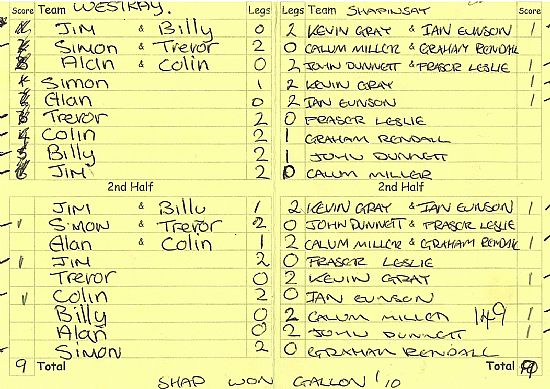 Score Team WESTRAY. Legs Legs Team SHAPINSAY Score
JIM & Billy 0 2 KEVIN GRAY & IAN EUNSON 1
Simon & Trevor 2 0 CALUM MILLER & GRAHAM RENDALL
Alan & Colin 0 2 JOHN DUNNETT & FRASER LESLIE 1
Simon 1 2 KEVIN GRAY 1
Alan 0 2 IAN EUNSON 1
3 Trevor 2 0 FRASER LESLIE
4 Colin 2 1 GRAHAM RENDALL
5 Billy 2 1 JOHN DUNNETT
6 JIM 2 0 CALUM MILLER
2nd Half 2nd Half
JIM & Billy 1 2 KEVIN GRAY & IAN EUNSON 1
1 SIMON & Trevor 2 0 JOHN DUNNETT & FRASER LESLIE
Alan & Colin 1 2 CALUM MILLER & GRAHAM RENDALL 1
1 JIM 2 0 FRASER LESLIE
Trevor 0 2 KEVIN GRAY 1
1 Colin 2 0 IAN EUNSON
Billy 0 2 CALUM MILLER 149 1
Alan 0 2 JOHN DUNNETT 1
Simon 2 0 GRAHAM RENDALL
9 Total Total
SHAP WON GALLON '10